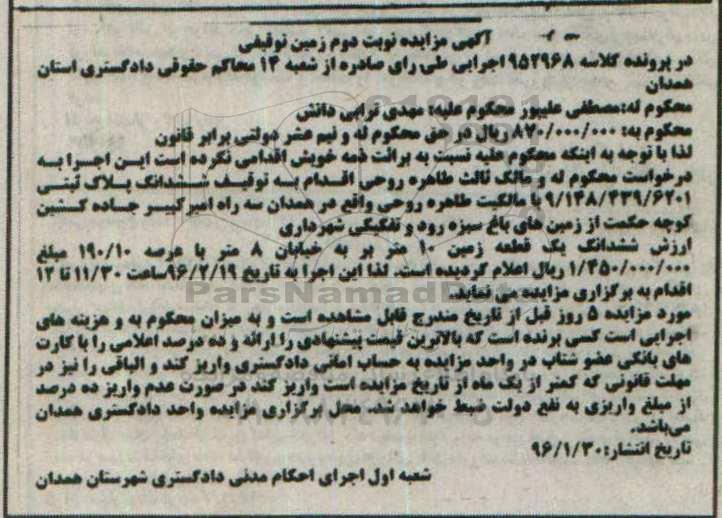 آگهی مزایده نوبت دوم زمین توقیفی
در پرونده کلاسه ۹۵۲۹۶۸ اجرایی طی رای صادره از شعبه ۱۴ محاکم حقوقی دادگستری استان
همدان
محکوم له:مصطفی علیپور محکوم علیه: مهدی ترابی دانش
محکوم به: ۸۷۰/۰۰۰/۰۰۰ ریال در حق محکوم له و نیم عشر دولتی برابر قانون
لذا با توجه به اینکه محکوم علیه نسبت به برائت ذمه خویش اقدامی نکرده است این اجرا به
درخواست محکوم له و مالک ثالث طاهره روحی اقدام به توقیف ششدانگ پلاک ثبتی
۹/۱۴۸/۴۳۹/۶۲۰۱ با مالکیت طاهره روحی واقع در همدان سه راه امیرکبیر جاده کشین
کوچه حکمت از زمین های باغ سبزه رود و تفکیکی شهرداری
ارزش ششدانگ یک قطعه زمین ۱۰ متر بر به خیابان ۸ متر با عرصه ۱۹۰/۱۰ مبلغ
۱/۴۵۰/۰۰۰/۰۰۰ ریال اعلام گردیده است. لذا این اجرا به تاریخ ۹۶/۲/۱۹ساعت ۱۱/۳۰ تا ۱۲
اقدام به برگزاری مزایده می نماید.
مورد مزایده ۵ روز قبل از تاریخ مندرج قابل مشاهده است و به میزان محکوم به و هزینه های
اجرایی است کسی برنده است که بالاترین قیمت پیشنهادی را ارائه و ده درصد اعلامی را با کارت
های بانکی عضو شتاب در واحد مزایده به حساب امانی دادگستری واریز کند و الباقی را نیز در
مهلت قانونی که کمتر از یک ماه از تاریخ مزایده است واریز کند در صورت عدم واریز ده درصد
از مبلغ واریزی به نفع دولت ضبط خواهد شد. محل برگزاری مزایده واحد دادگستری همدان
می‌باشد.
تاریخ انتشار:۹۶/۱/۳۰
شعبه اول اجرای احکام مدنی دادگستری شهرستان همدان
ParsNamadData